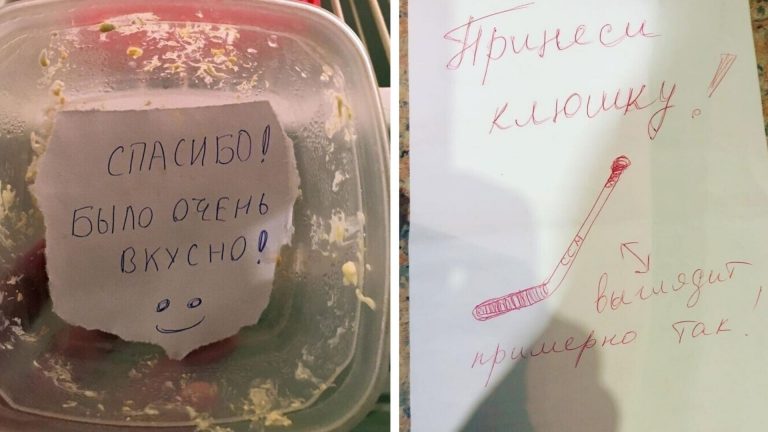 СПАСИБО!
БЫЛО ОЧЕНЬ
ВКУСНО!
Принеси
клюшку!
CCM
выглядит
примерно так!